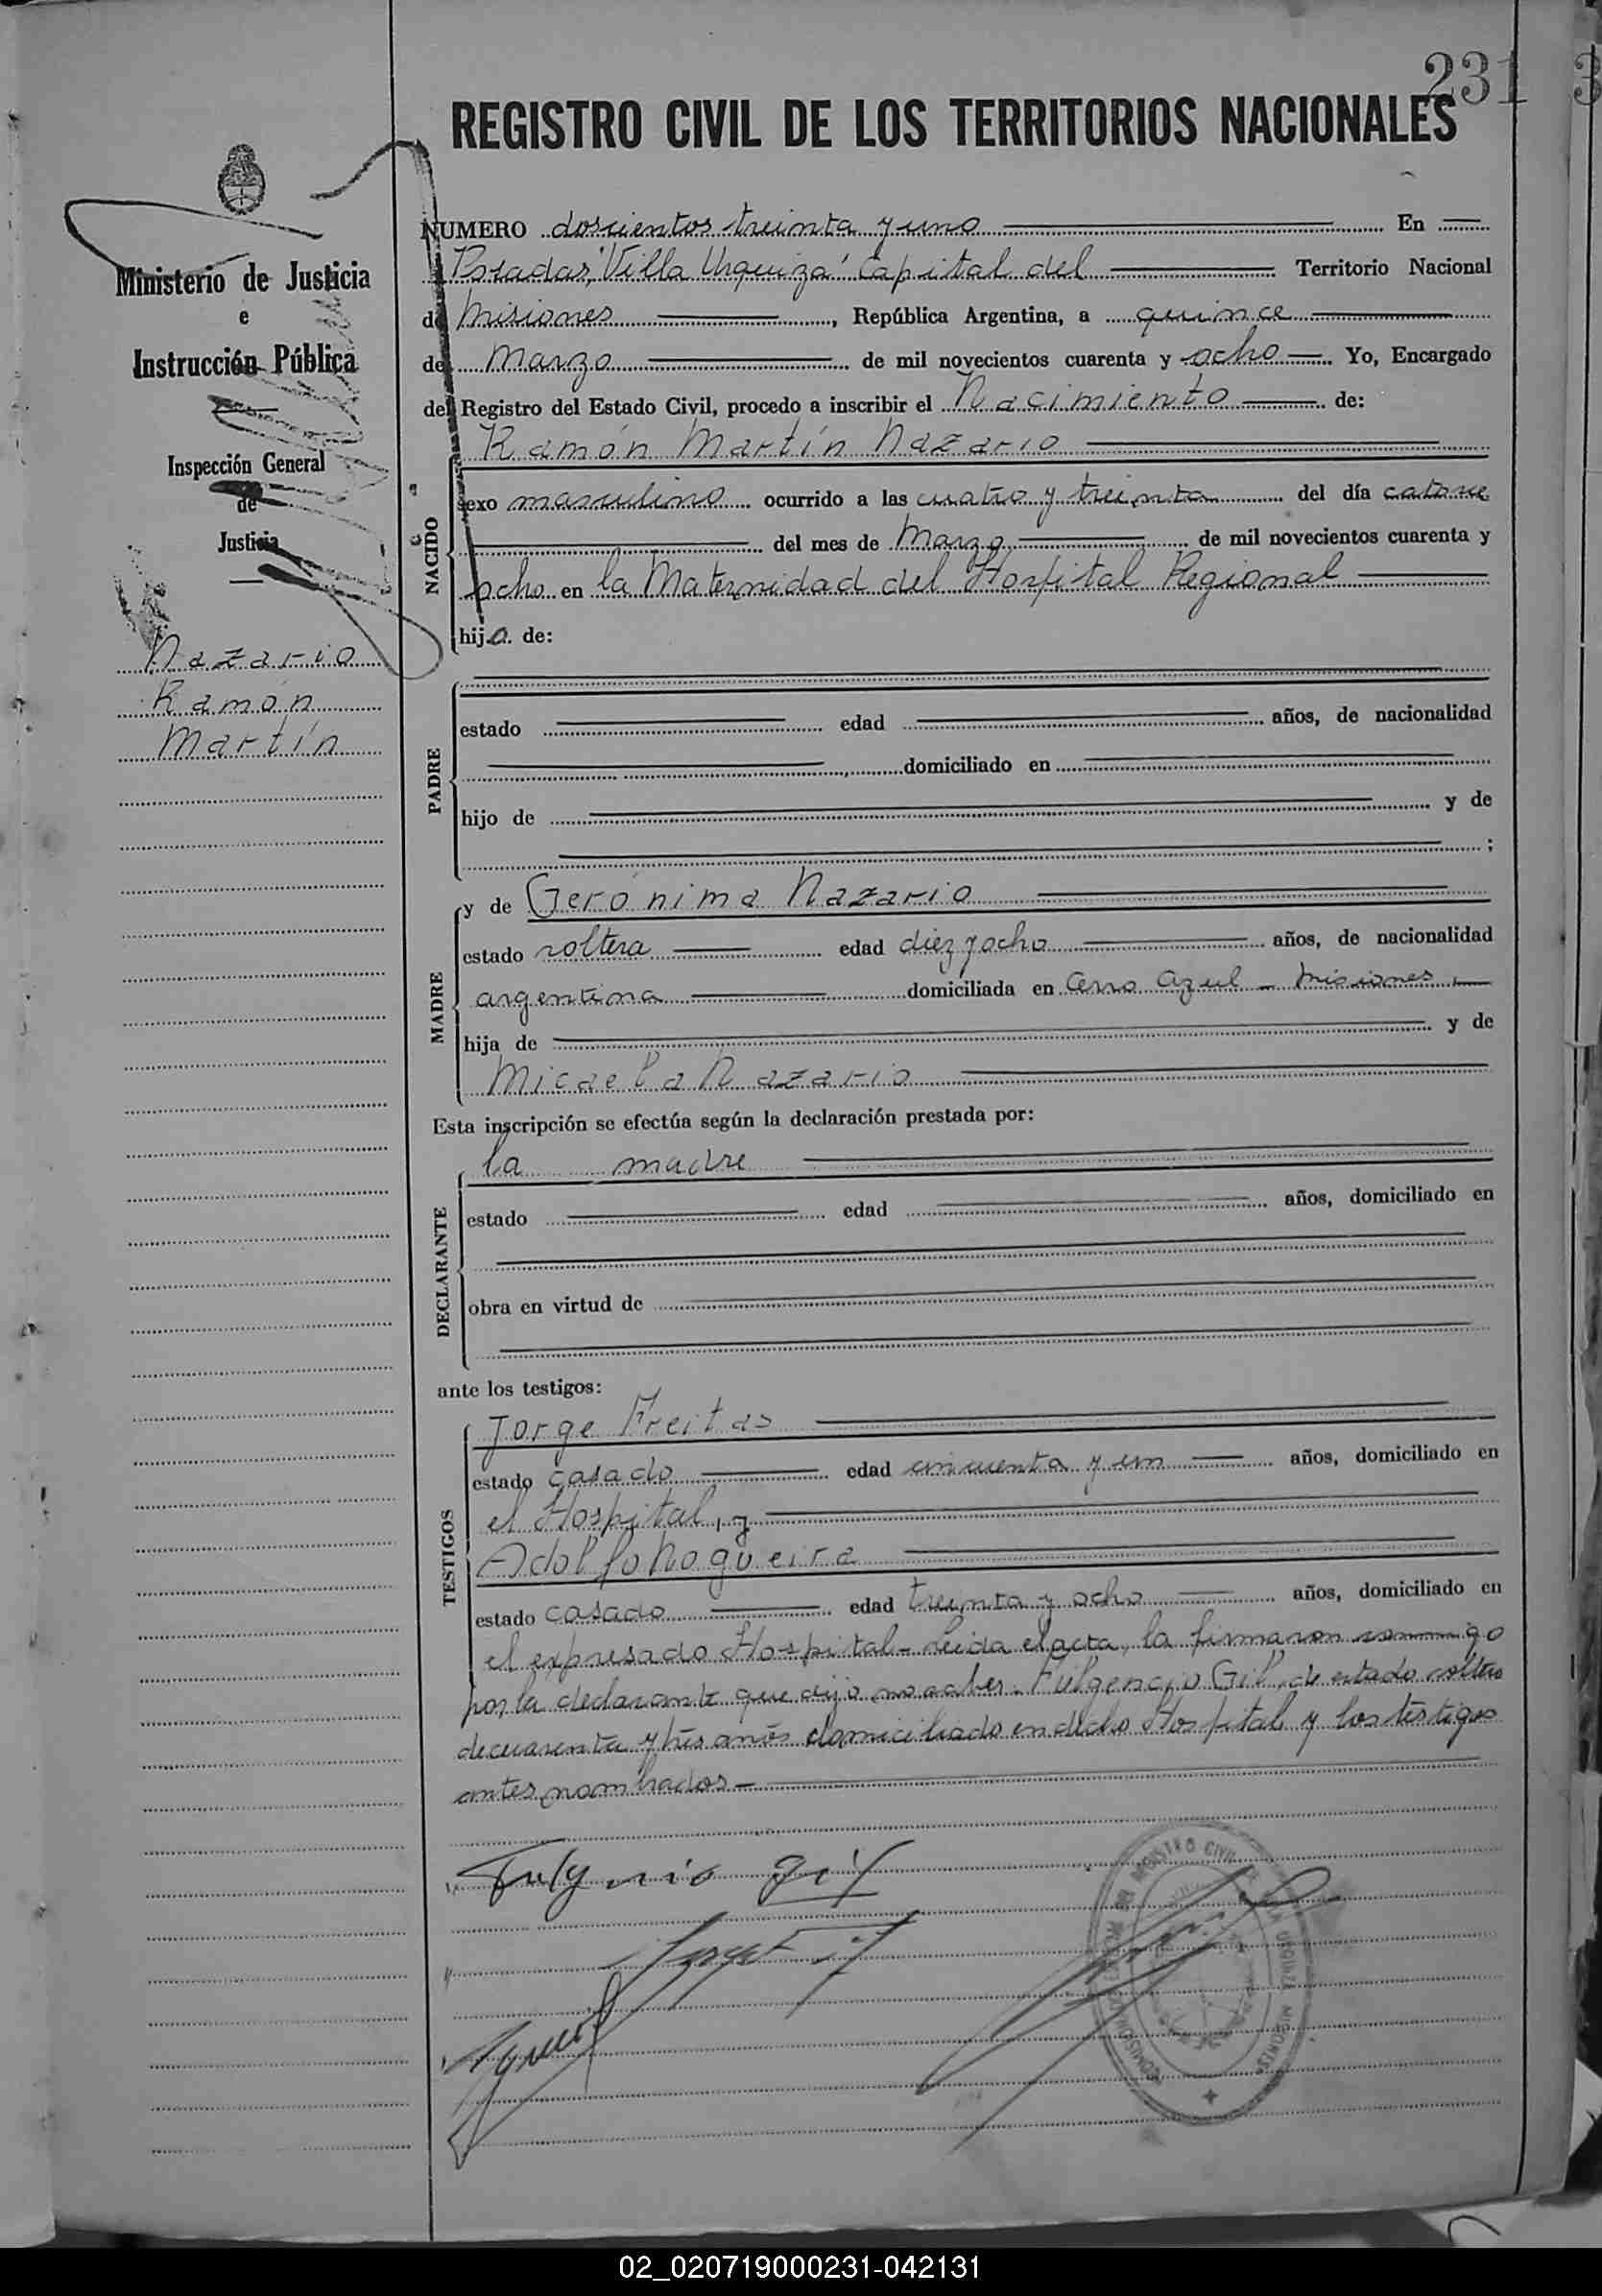 231
REGISTRO CIVIL DE LOS TERRITORIOS NACIONALES
Ministerio de Justicia
e
Instrucción Pública
Inspección General
de
Justicia
Nazario
Ramón
Martín
NUMERO doscientos treinta y uno En
Posadas "Villa Urquiza" Capital del Territorio Nacional
de Misiones, República Argentina, a quince
de Marzo de mil novecientos cuarenta y ocho Yo, Encargado
del Registro del Estado Civil, procedo a inscribir el Nacimiento de:
NACIDO
Ramón Martín Nazario
sexo masculino ocurrido a las cuatro y treinta del día catorce
del mes de Marzo de mil novecientos cuarenta y
ocho en la Maternidad del Hospital Regional
hijo de:
PADRE
estado edad años, de nacionalidad
domiciliado en
hijo de y de
;
MADRE
y de Gerónima Nazario
estado soltera edad diez y ocho años, de nacionalidad
argentina domiciliada en Cerro Azul - Misiones.
hija de y de
Micaela Nazario
Esta inscripción se efectúa según la declaración prestada por:
DECLARANTE
la madre
estado edad años, domiciliado en
obra en virtud de
ante los testigos:
TESTIGOS
Jorge Freitas
estado casado edad cincuenta y un años, domiciliado en
el Hospital, y
Adolfo Nogueira
estado casado edad treinta y ocho años, domiciliado en
el expresado Hospital - Leida el acta, la firmaron conmigo
por la declarante que dijo no saber. Fulgencio Gil, de estado soltero
de cuarenta y tres años domiciliado en dicho Hospital y los testigos
antes nombrados -
Fulgencio Gil
DEL REGISTRO CIVIL DE VILLA URQUIZA MISIONES
02_020719000231-042131